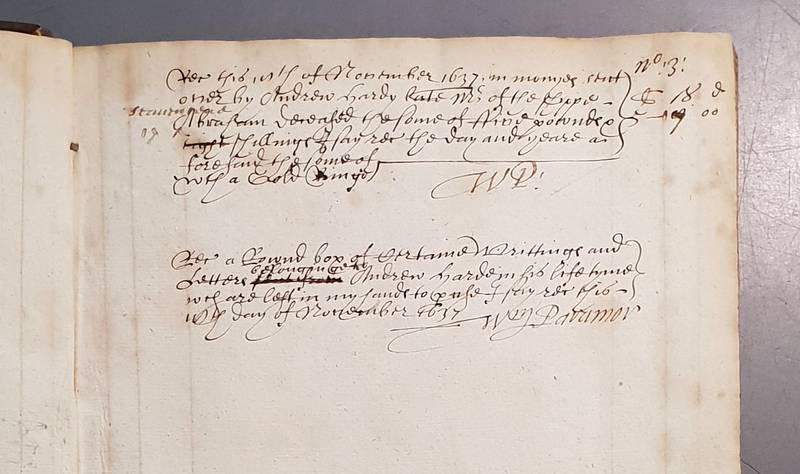 No: 3:
Rec this 11th of November 1637 in monyes sent
over by Andrew Hardy late Mr of the Shipe
Abraham deceased the some of ffive pownde
eight shillings I say rec the day and yeare a
foresaid the some of
wth a Gold Ringe
18 d
09 00
WP:
Rec a Rownd box of Certaine Writtings and
Letters belonginge to Andrew Harde in his life tyme
wch are left in my hands to I say rec this
11th day of November 1637
Wm Paramor